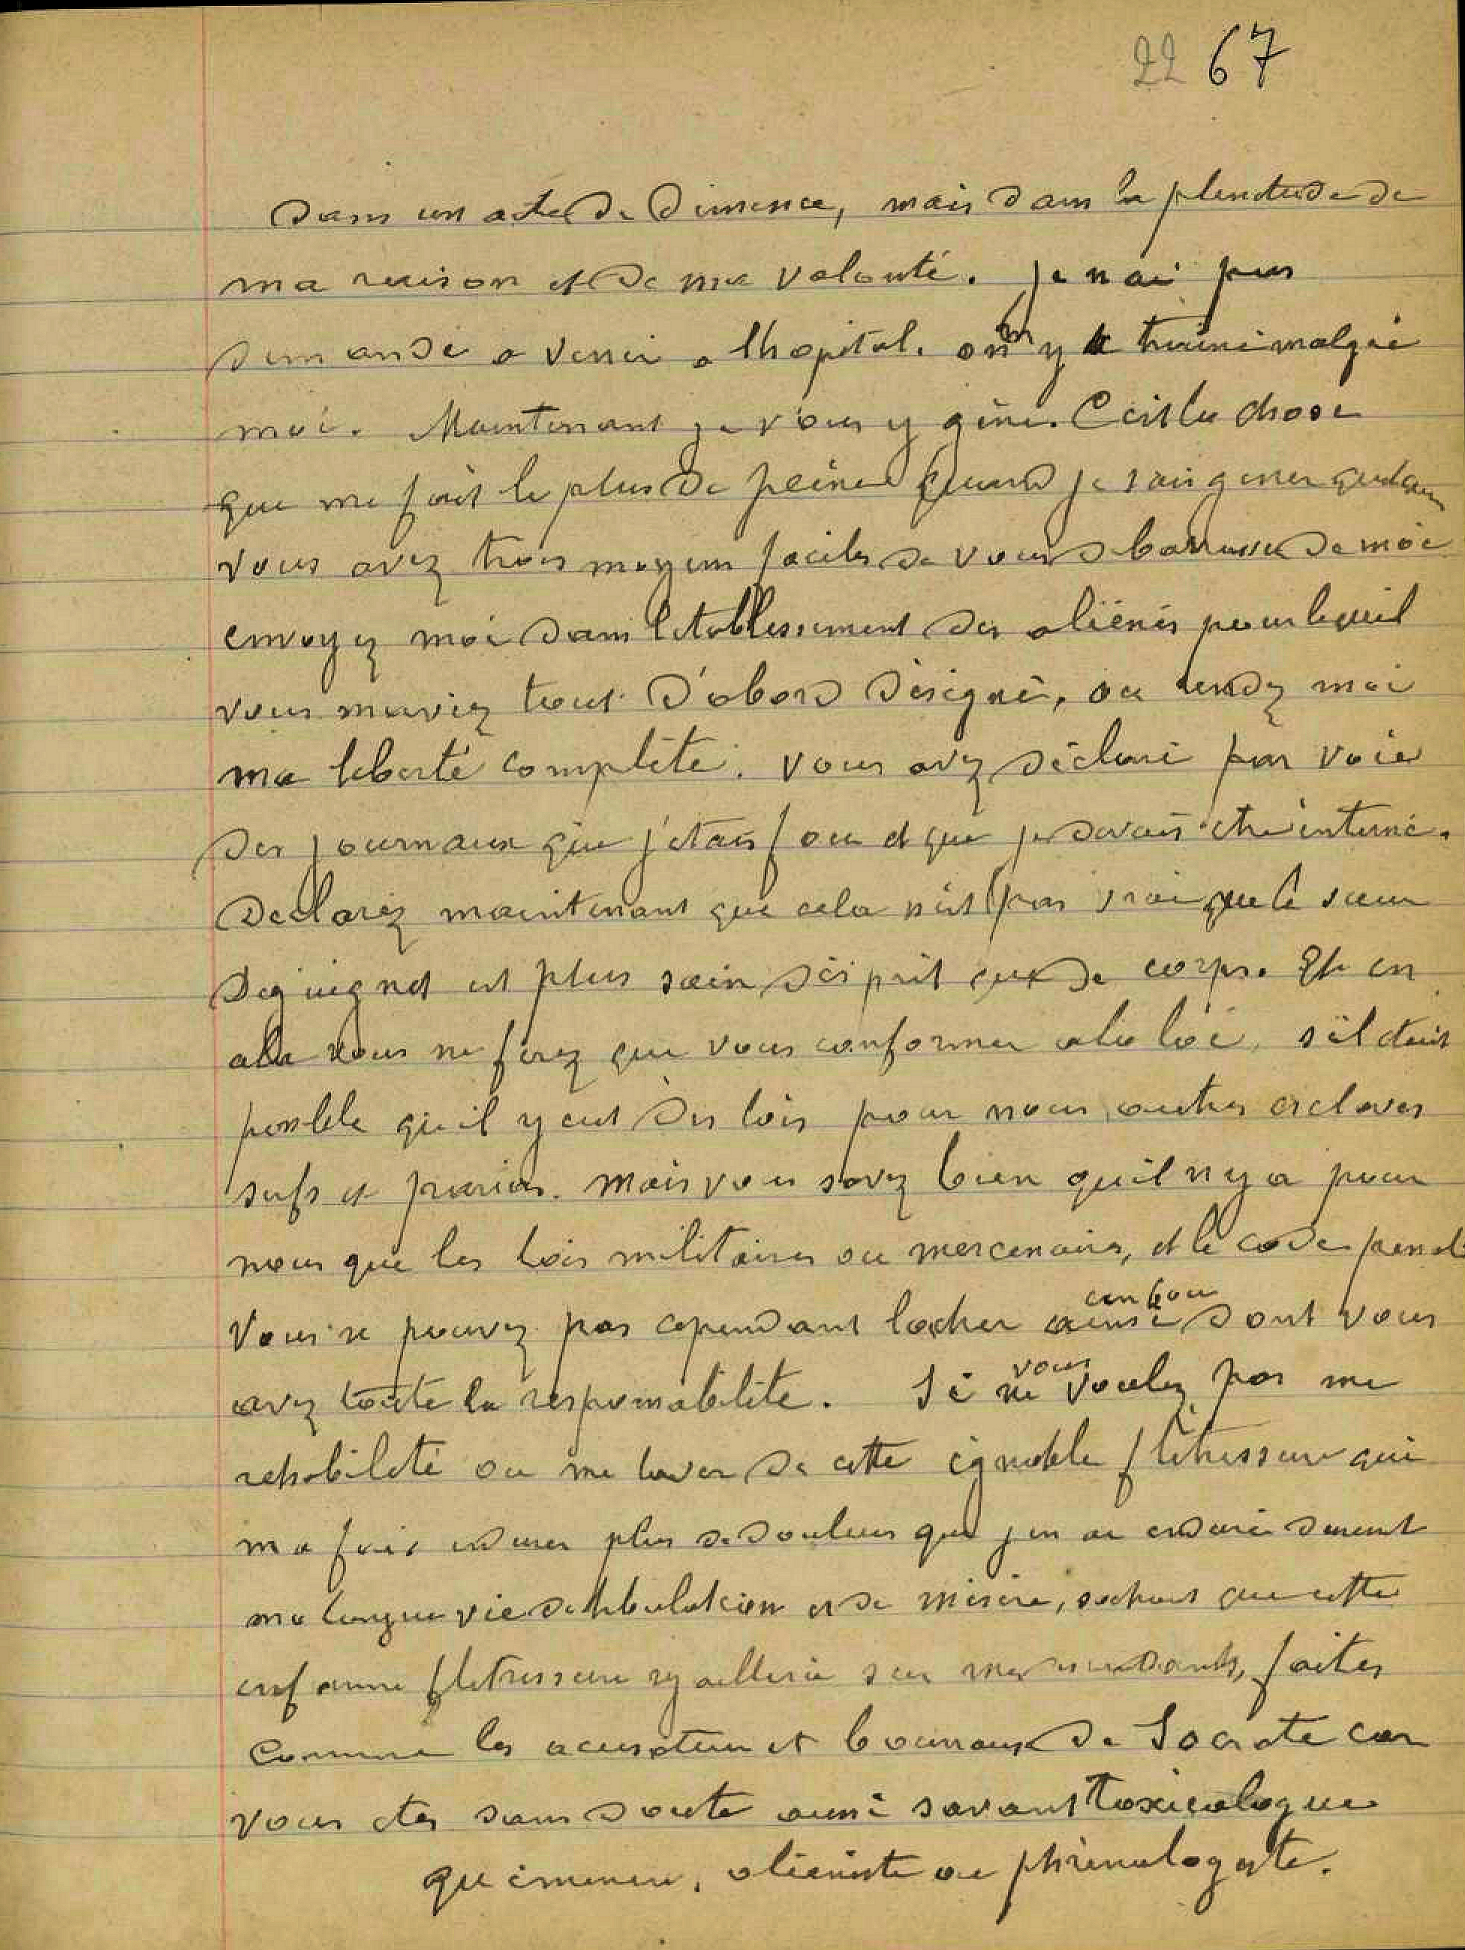 22 67
dans un acte de dimence, mais dans la plenitude de
ma raison et de ma volonté. je nai pas
demandé a venir a lhopital. on m'y a trainé malgré
moi. Maintenant je vous y gène. C'est la chose
que me fait le plus de peine quand je sais gener quelqun
vous avez trois moyens faciles de vous debarrasser de moi
envoyez moi dans letablissement des aliénés pour lequel
vous maviez tout d'abord désigné, ou rendez moi
ma liberté complète. vous avez déclaré par voie
des journaux que j'etais fou et que je devais etre interné.
Declarez maintenant que cela n'est pas vrai que le sieur
Deguignet est plus sain d'esprit que de corps. Et en
cela vous ne ferez que vous conformer a la loi, s'il etait
possible qu'il y eut des lois pour nous autres esclaves
serfs et parias. Mais vous savez bien qu'il n'y a pour
nous que les lois militaires ou mercenaires, et le code penal
Vous ne pouvez pas cependant lacher ainsi un fou dont vous
avez toute la responsabilité. Si vous ne voulez pas me
rehabilité ou me laver de cette ignoble flétrissure qui
ma fait endurer plus de douleurs que jen ai enduré durant
ma longue vie de tribulation et de misère, sachant que cette
infamne fletrissure rejaillerai sur mes descendants, faites
comme les acusateurs et bourraux de Socrate car
vous etes sans doute aussi savant toxicologue
qu'immense, alieniste ou phrénologiste.